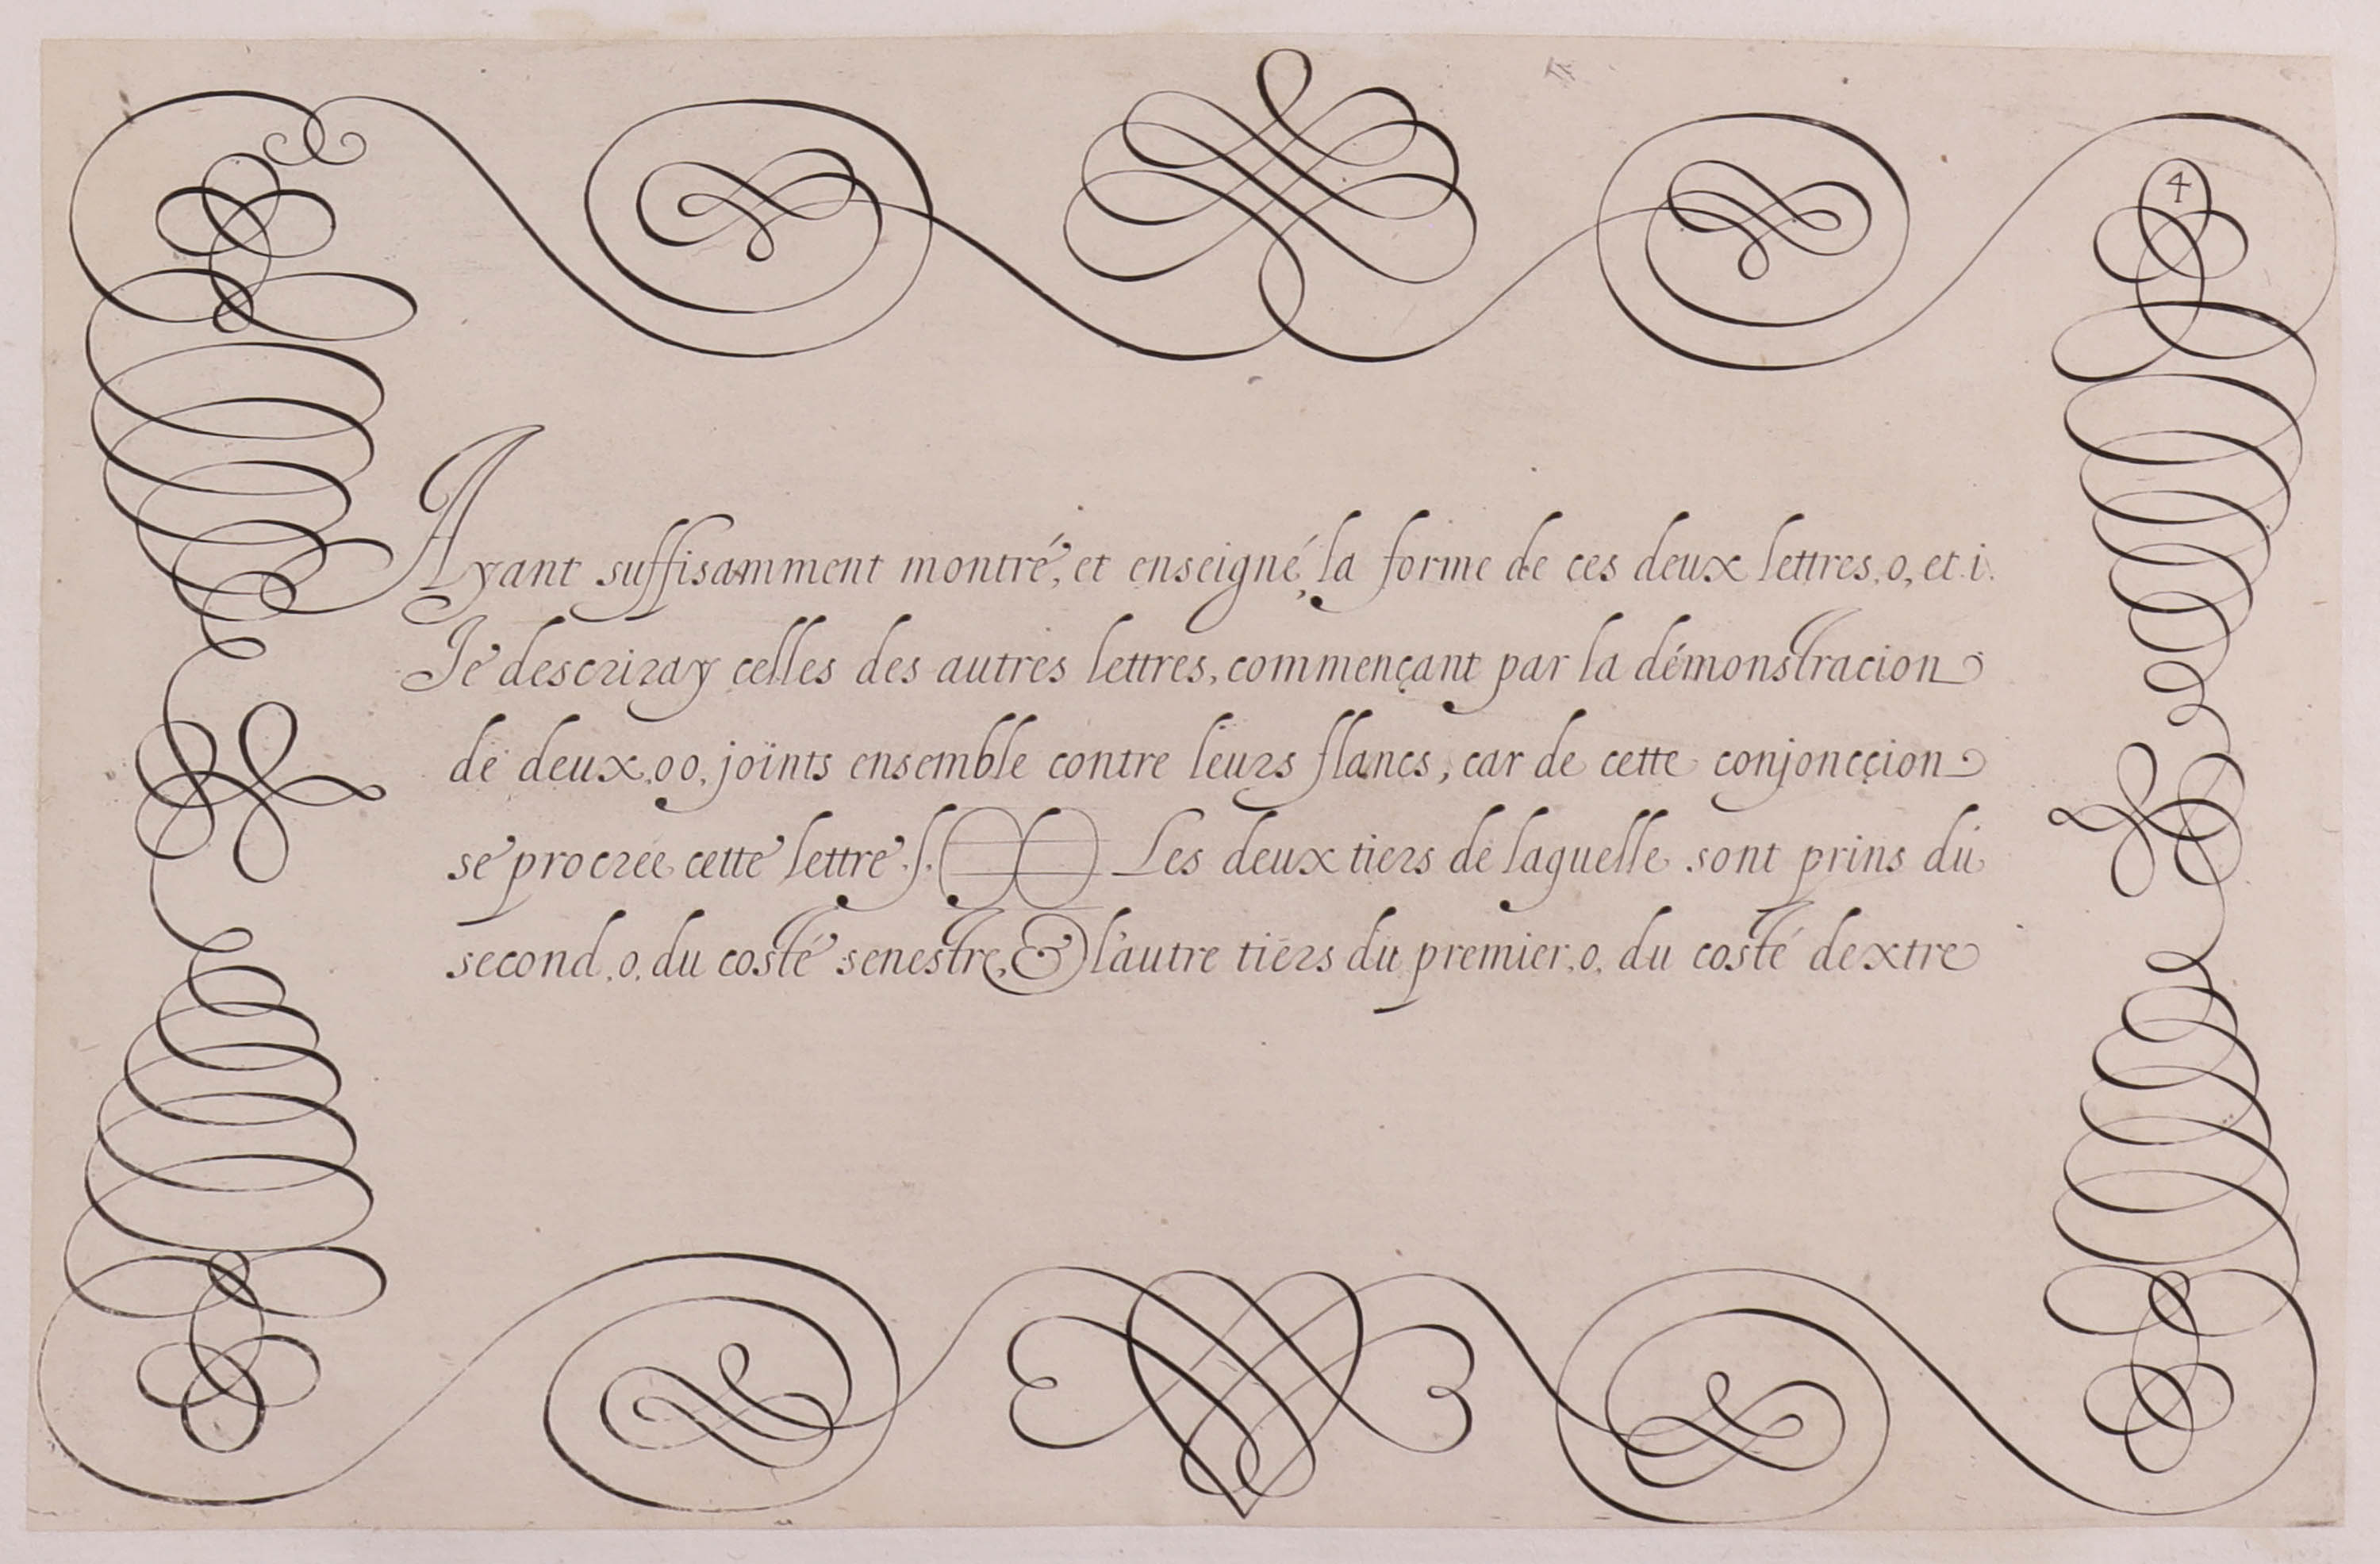 4
Ayant suffisamment montré, et enseigné, la forme de ces deux lettres, o, et .i.
Je descriray celles des autres lettres, commençant par la démonstracion
de deux .oo, joints ensemble contre leurs flancs, car de cette conjoncçion
se procrée cette lettre .ſ. Les deux tiers de laquelle sont prins du
second .o. du costé senestre, & l'autre tiers du premier .o. du costé dextre